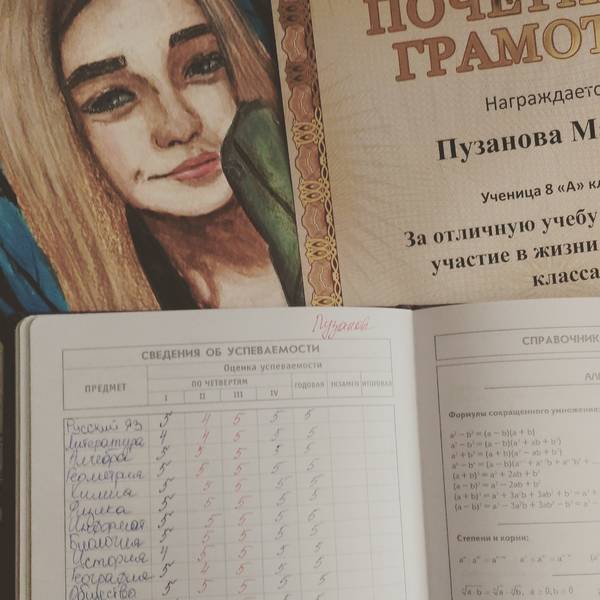 ПОЧЕТН
ГРАМОТ
Награждаетс
Пузанова М
Ученица 8 «А» кл
За отличную учебу
участие в жизни
класса
Пузанов
СВЕДЕНИЯ ОБ УСПЕВАЕМОСТИ
ПРЕДМЕТ
Оценка успеваемости
ПО ЧЕТВЕРТЯМ ГОДОВАЯ ЭКЗАМЕН ИТОГОВАЯ
I II III IV
Русский яз 5 4 5 5 5
Литература 4 4 5 5 5
Алгебра 5 5 5 5 5
Геометрия 5 5 5 5 5
Химия 5 5 5 5 5
Физика 5 5 5 5 5
Информат 5 5 5 5
Биология 5 5 5 5 5
История 4 5 5 5 5
География 5 4 5 5 5
Общество 5 5 5 5 5
СПРАВОЧНИК
АЛ
Формулы сокращенного умножения:
a² − b² = (a − b)(a + b)
a³ − b³ = (a − b)(a² + ab + b²)
a³ + b³ = (a + b)(a² − ab + b²)
(a + b)² = a² + 2ab + b²
(a − b)² = a² − 2ab + b²
(a + b)³ = a³ + 3a²b + 3ab² + b³ = a³ +
(a − b)³ = a³ − 3a²b + 3ab² − b³ = a³ −
Степени и корни: